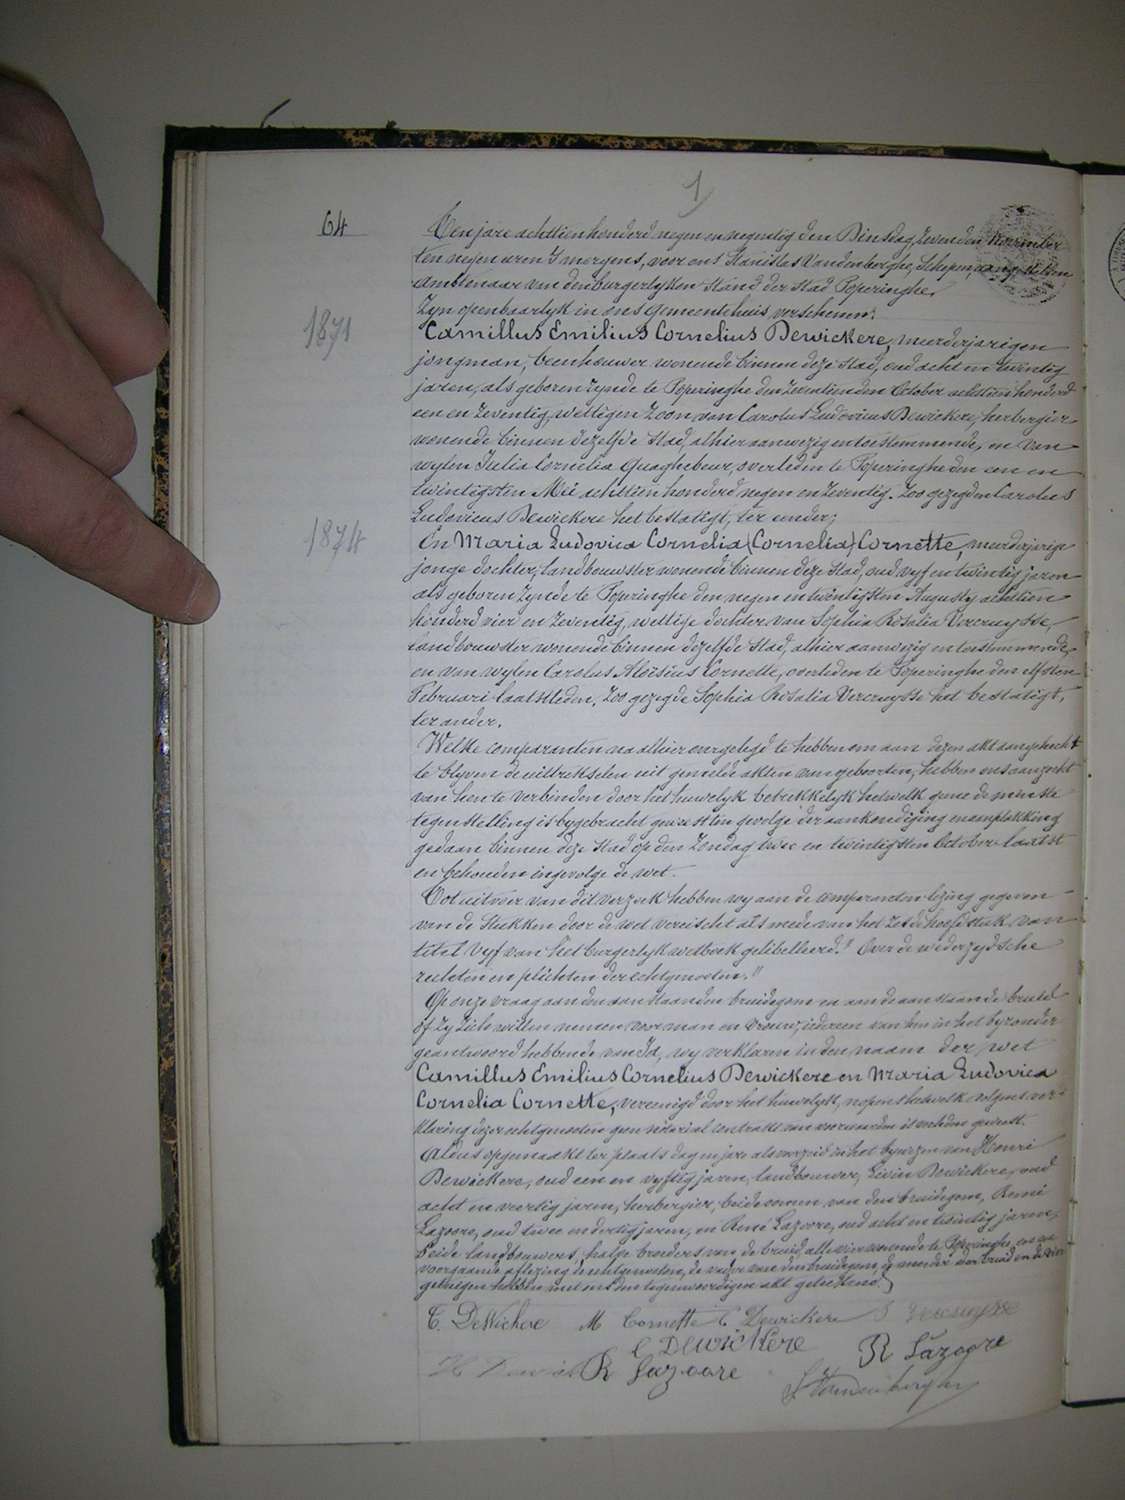 1
64
Ten jare achttien honderd negen en negentig den Dinsdag, zevenden November
ten negen uren 's morgens, voor ons Stanislas Vandenberghe, Schepen,
ambtenaar van den burgerlyken stand der stad Poperinghe,
Zyn openbaarlyk in ons gemeentehuis verschenen:
1871
Camillus Emilius Cornelius Dewickere, meerderjarigen
jongman, beenhouwer wonende binnen deze stad, oud acht en twintig
jaren, als geboren zynde te Poperinghe den zeventienden October achttien honderd
een en zeventig, wettigen zoon van Carolus Ludovicus Dewickere, herbergier
wonende binnen dezelfde stad, alhier aanwezig en toestemmende, en van
wylen Julia Cornelia Quaghebeur, overleden te Poperinghe den een en
twintigsten Mei achttien honderd negen en zeventig. Zoo gezegden Carolus
Ludovicus Dewickere het bestatigt, ter eender;
1874
En Maria Ludovica Cornelia (Cornelia) Cornette, meerderjarige
jonge dochter, landbouwster wonende binnen deze stad, oud vyf en twintig jaren
als geboren zynde te Poperinghe den negen en twintigsten Augusty achttien
honderd vier en zeventig, wettige dochter van Sophia Rosalia Vercruysse,
landbouwster wonende binnen dezelfde stad, alhier aanwezig en toestemmende,
en van wylen Carolus Aloïsius Cornette, overleden te Poperinghe den elfsten
Februari laatstleden, Zoo gezegde Sophia Rosalia Vercruysse het bestatigt,
ter ander.
Welke comparanten na alhier overgelegd te hebben om aan dezen akt aangehecht
te blyven de uittrekselen uit gemelde akten van geboorten, hebben ons aanzocht
van hen te verbinden door het huwelyk betrekkelyk hetwelk geene de minste
tegenstelling is bygebracht geweest ten gevolge der aankondiging en aanplakking
gedaan binnen deze stad op den Zondag twee en twintigsten October laatst
en behouden ingevolge de wet.
Tot uitvoer van dit verzoek hebben wy aan de comparanten lezing gegeven
van de stukken door de wet vereischt als mede van het zesde hoofdstuk van
titel vyf van het burgerlyk wetboek gelibelleerd: " Over de wederzydsche
rechten en plichten der echtgenooten. "
Op onze vraag aan den aanstaanden bruidegom en aan de aanstaande bruid
of zy zich willen nemen voor man en vrouw, iedereen van hen in het byzonder
geantwoord hebbende van Ja, wy verklaren in den naam der wet
Camillus Emilius Cornelius Dewickere en Maria Ludovica
Cornelia Cornette, vereenigd door het huwelyk, nopens hetwelk volgens ver-
klaring dezer echtgenooten geen notarial contrakt van voorwaarden is verleden geweest.
Aldus opgemaakt ter plaats dag en jare als voorzeid in het bywezen van Henri
Dewickere, oud een en vyftig jaren, landbouwer, Livin Dewickere, oud
acht en veertig jaren, herbergier, beide oomen van den bruidegom, Remi
Lazoore, oud twee en dertig jaren, en René Lazoore, oud acht en twintig jaren,
beide landbouwers, halve broeders van de bruid, alle vier wonende te Poperinghe, en na
voorgaande aflezing de echtgenooten, de vader van den bruidegom, de moeder der bruid en de vier
getuigen hebben met ons den tegenwoordigen akt geteekend.
C. DeWickere M Cornette C Dewickere S Vercruysse
L Dewickere R Lazoore
H R Lazoore
S Vandenberghe